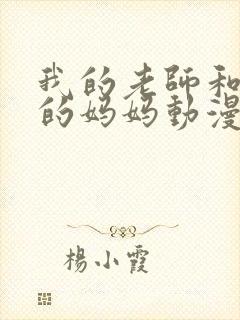 我的老師和
的媽媽動漫
楊小霞